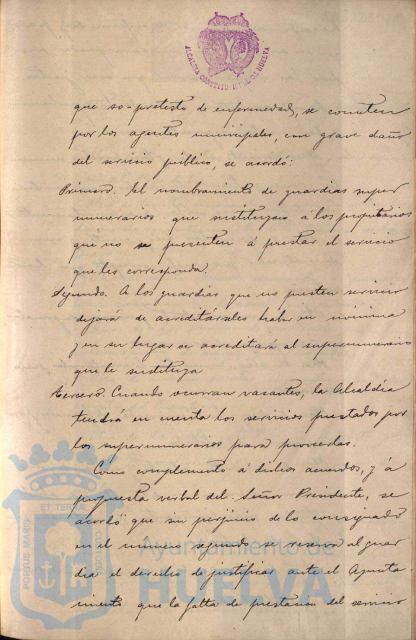 ALCALDIA CONSTITUCIONAL DE HUELVA
que so-pretesto de enfermedad, se cometen
por los agentes municipales, con grave daño
del servicio público, se acordó:
Primero. El nombramiento de guardias super
numerarios que sustituyan á los propietarios
que no se presenten á prestar el servicio
que les corresponda.
Segundo. A los guardias que no presten servicio
dejará de acreditárseles haber en nómina
y en su lugar se acreditará al supernumerario
que le sustituya
Tercero. Cuando ocurran vacantes, la Alcaldía
tendrá en cuenta los servicios prestados por
los supernumerarios para proveerlas.
Como complemento á dichos acuerdos, y á
propuesta verbal del Señor Presidente, se
acordó que sin perjuicio de lo consignado
en el número segundo se reserva al guar
dia el derecho de justificar ante el Ayunta
miento que la falta de prestación del servicio
PORTUS MARIS ET TERRAE
Ayuntamiento de
HUELVA